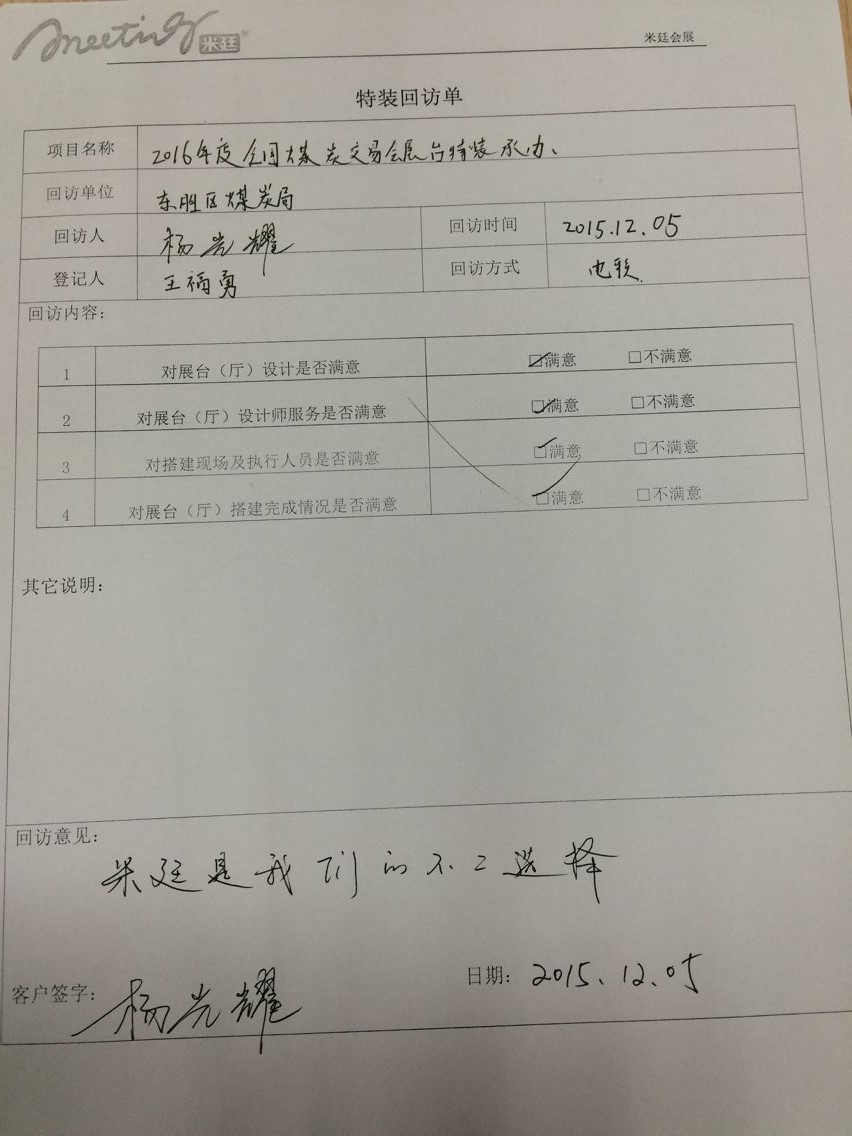 meeting 米廷
米廷会展
特装回访单
项目名称 2016年度全国煤炭交易会展台特装承办、
回访单位 东胜区煤炭局
回访人 杨光耀 回访时间 2015.12.05
登记人 王福勇 回访方式
回访内容：
1 对展台（厅）设计是否满意 ☑满意 □不满意
2 对展台（厅）设计师服务是否满意 ☑满意 □不满意
3 对搭建现场及执行人员是否满意 ☑满意 □不满意
4 对展台（厅）搭建完成情况是否满意 ☑满意 □不满意
其它说明：
回访意见：
米廷是我们的不二选择
客户签字： 杨光耀 日期： 2015.12.05